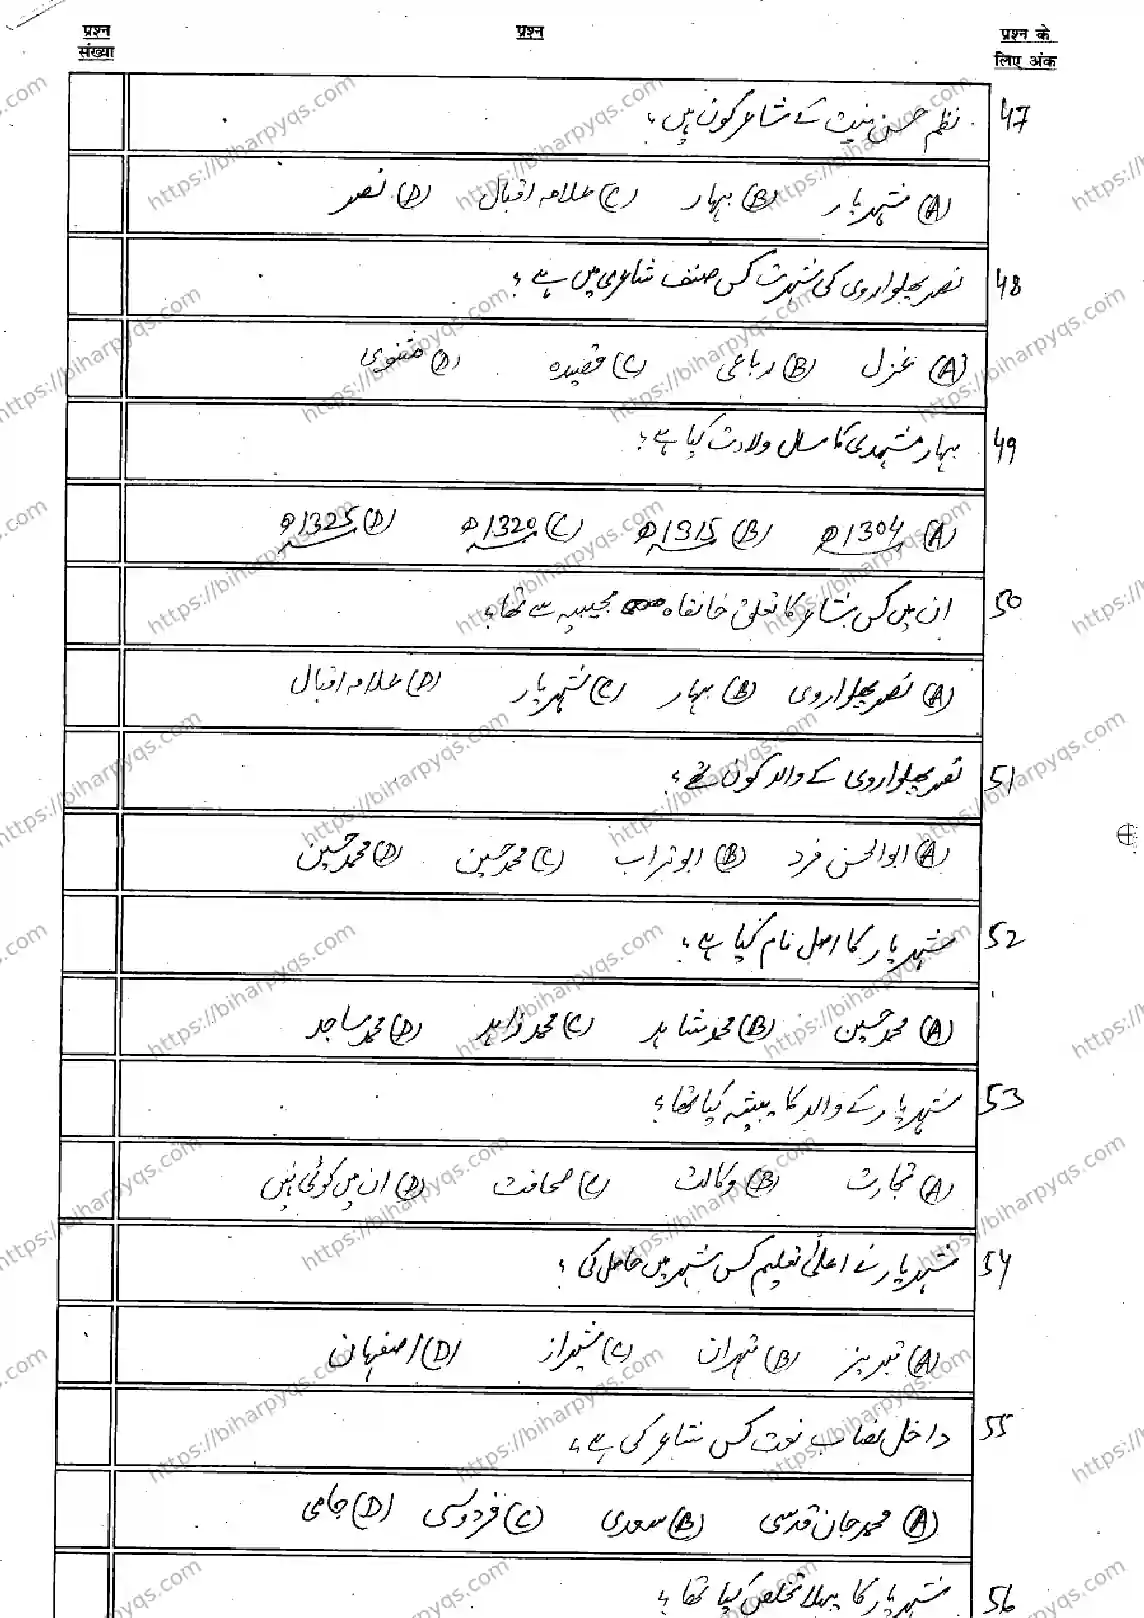 प्रश्न संख्या
प्रश्न
प्रश्न के लिए अंक
47 نظم حسن نیت کے شاعر کون ہیں؟
(A) شہریار (B) بہار (C) علامہ اقبال (D) نصر
48 نصر پھلواروی کی شہرت کس صنف شاعری میں ہے؟
(A) غزل (B) رباعی (C) قصیدہ (D) مثنوی
49 بہار مشہدی کا سال ولادت کیا ہے؟
(A) 1304ھ (B) 1315ھ (C) 1320ھ (D) 1325ھ
50 ان میں کس شاعر کا تعلق خانقاہ مجیبیہ سے تھا؟
(A) نصر پھلواروی (B) بہار (C) شہریار (D) علامہ اقبال
51 نصر پھلواروی کے والد کون تھے؟
(A) ابوالحسن فرد (B) ابو تراب (C) محمد حسین (D) محمد حسین
52 شہریار کا اصل نام کیا ہے؟
(A) محمد حسین (B) محمد شاہد (C) محمد زاہد (D) محمد ساجد
53 شہریار کے والد کا پیشہ کیا تھا؟
(A) تجارت (B) وکالت (C) صحافت (D) ان میں کوئی نہیں
54 شہریار نے اعلیٰ تعلیم کس شہر میں حاصل کی؟
(A) تبریز (B) تہران (C) شیراز (D) اصفہان
55 داخل نصاب نعت کس شاعر کی ہے؟
(A) محمد جان قدسی (B) سعدی (C) فردوسی (D) جامی
56 شہریار کا پہلا تخلص کیا تھا؟
https://biharpyqs.com